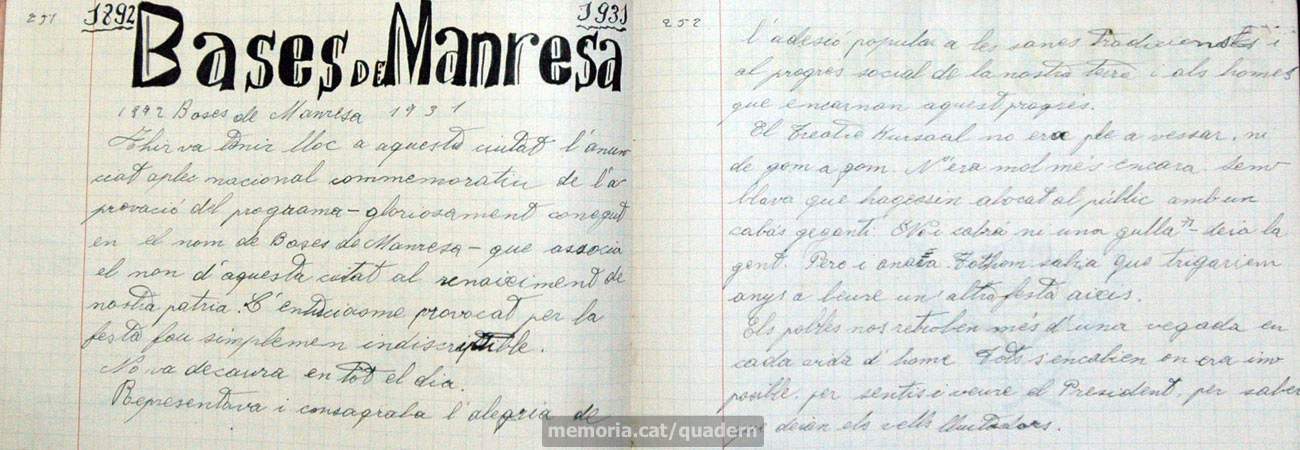 251
1892 1931
Bases de Manresa
1892 Bases de Manresa 1931
Ahir va tenir lloc a aquesta ciutat l'anun-
ciat aplec nacional commemoratiu de l'a-
provació del programa - gloriosament conegut
en el nom de Bases de Manresa - que associa
el non d'aquesta cutat al renaixement de
nostra patria. L'entusiasme provocat per la
festa fou simplemen indiscriptible.
No va decaura en tot el dia.
Representava i consagraba l'alegria de
252
l'adesió popular a les sanes tradicions i
al progrés social de la nostra terra i als homes
que encarnan aquest progrés.
El Treatre Kursaal no era ple a vessar, ni
de gom a gom. N'era mol més encara. Sem
blava que haguessin abocat al públic amb un
cabás geganti. No i cabrá ni una gulla - deia la
gent. Pero i anava. Tothom sabia que trigariem
anys a beure un altra festa aixis.
Els pobles nos retroben més d'una vegada en
cada vida d'home. Tots s'encabien on era im
posible, per sentir i veure el President, per saber
que deien els vells lluitadors.
memoria.cat/quadern